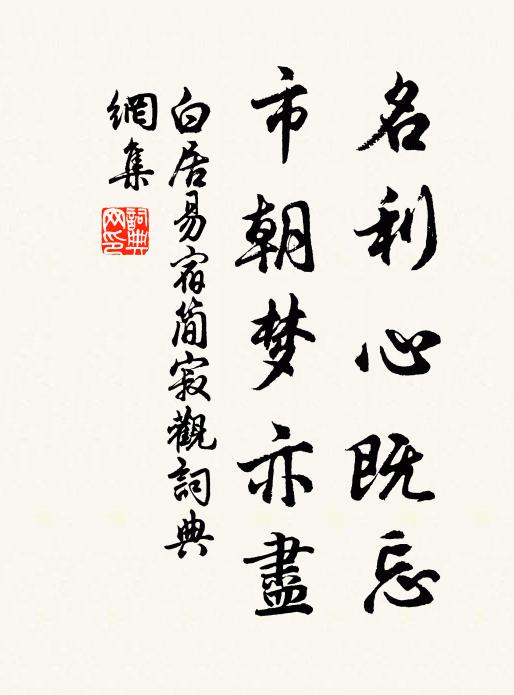 名利心既忘
市朝梦亦盡
白居易宿簡寂觀詞典
網集
詞典网印